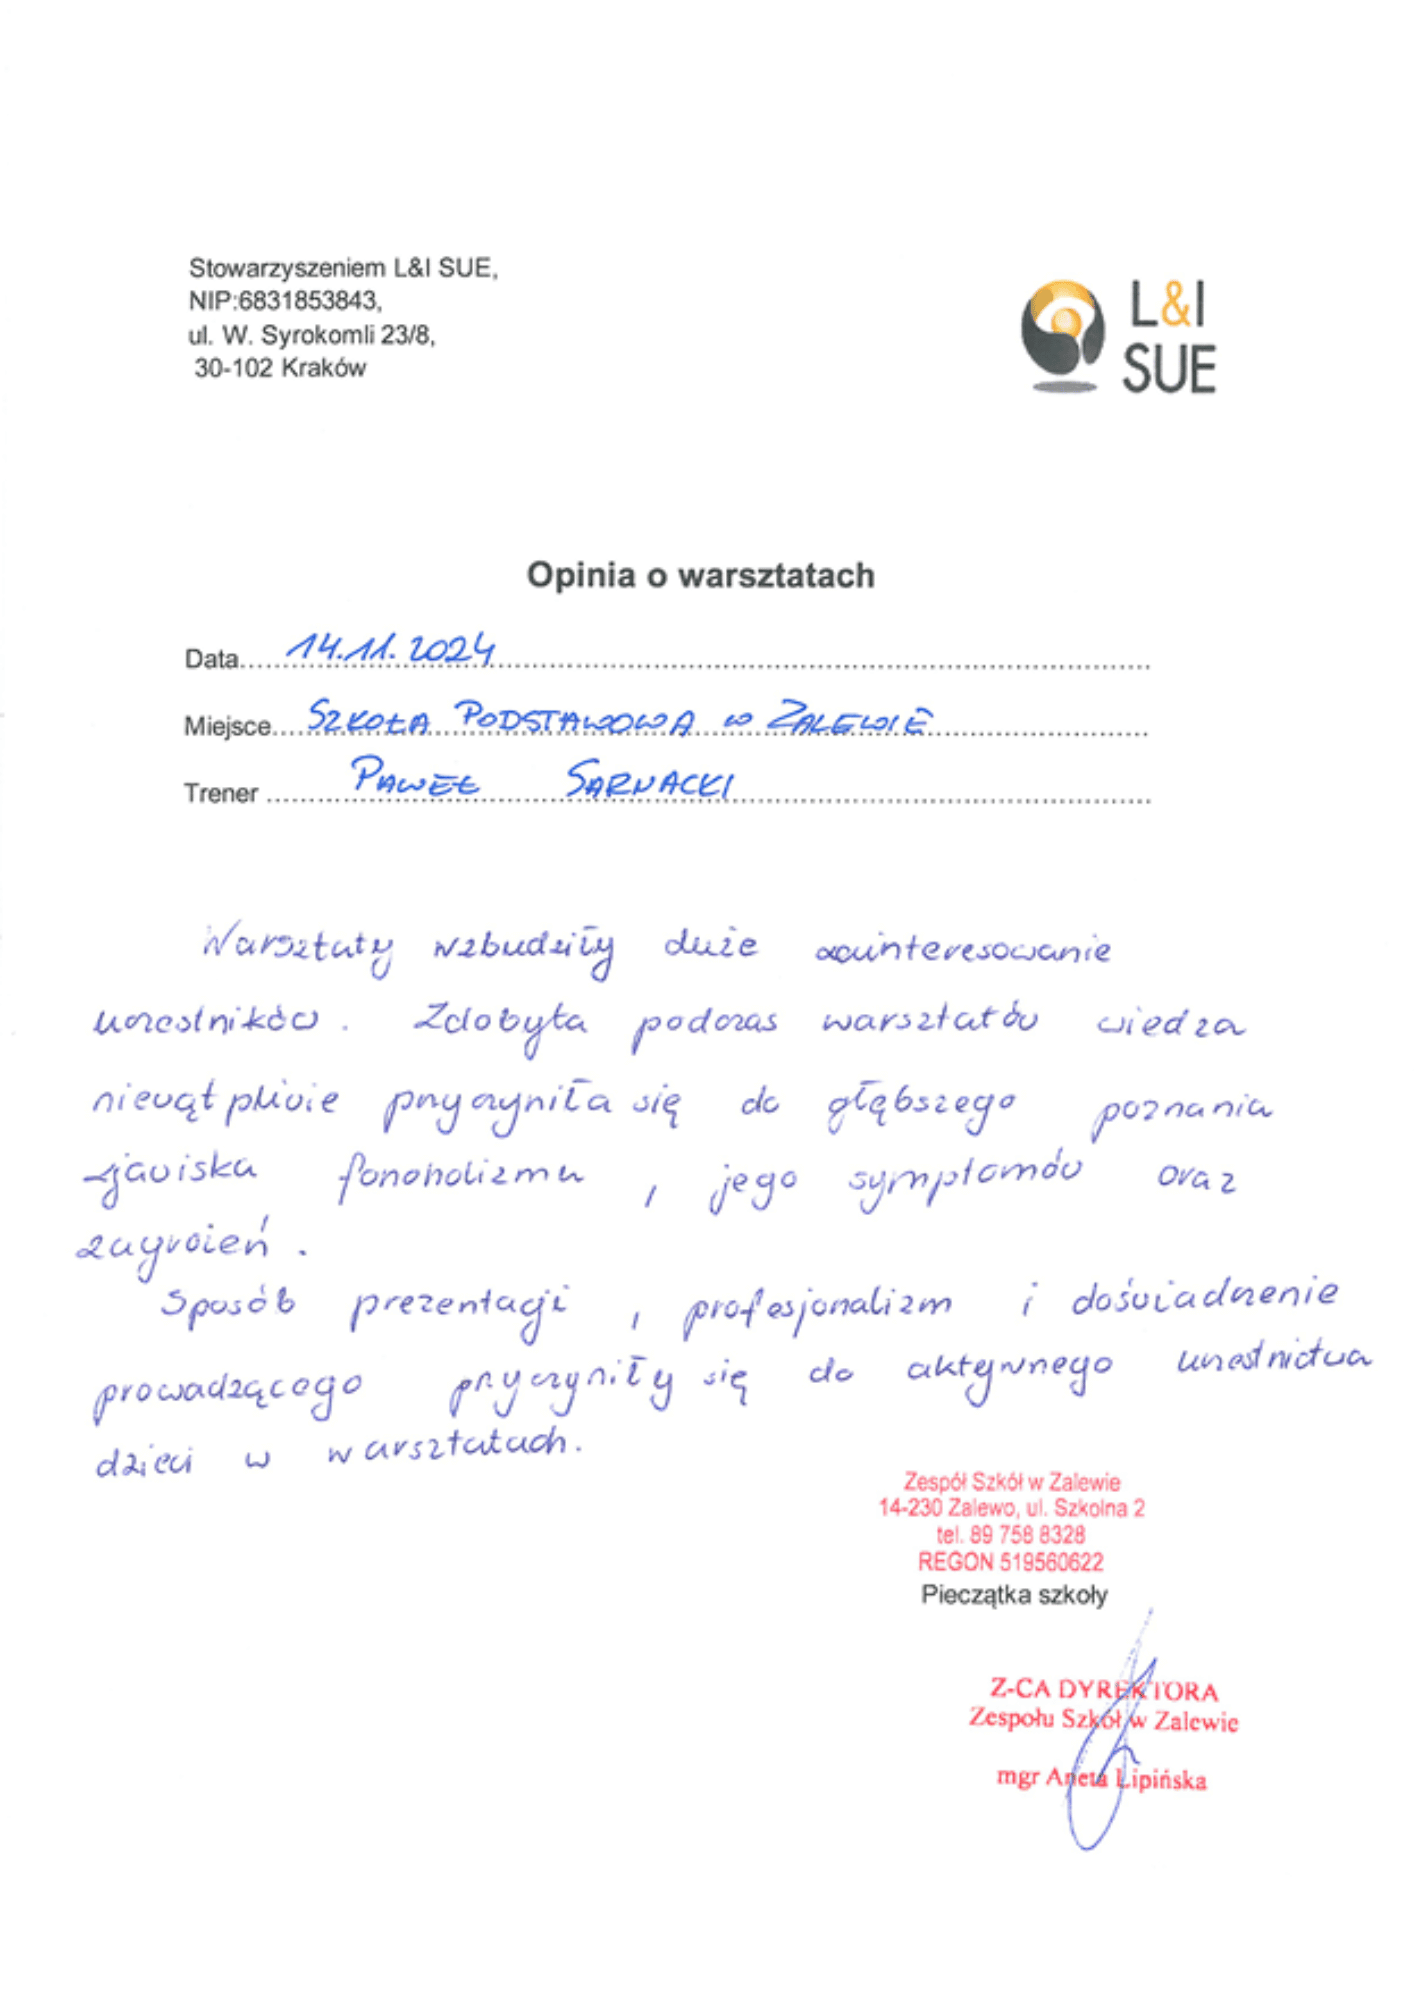 Stowarzyszeniem L&I SUE,
NIP:6831853843,
ul. W. Syrokomli 23/8,
30-102 Kraków
L&I
SUE
Opinia o warsztatach
Data..... 14.11.2024
Miejsce.... SZKOŁA PODSTAWOWA W ZALEWIE
Trener ..... PAWEŁ SARNACKI
Warsztaty wzbudziły duże zainteresowanie
uczestników. Zdobyta podczas warsztatów wiedza
niewątpliwie przyczyniła się do głębszego poznania
zjawiska fonoholizmu, jego symptomów oraz
zagrożeń.
Sposób prezentacji, profesjonalizm i doświadczenie
prowadzącego przyczyniły się do aktywnego uczestnictwa
dzieci w warsztatach.
Zespół Szkół w Zalewie
14-230 Zalewo, ul. Szkolna 2
tel. 89 758 8328
REGON 519560622
Pieczątka szkoły
Z-CA DYREKTORA
Zespołu Szkół w Zalewie
mgr Aneta Lipińska